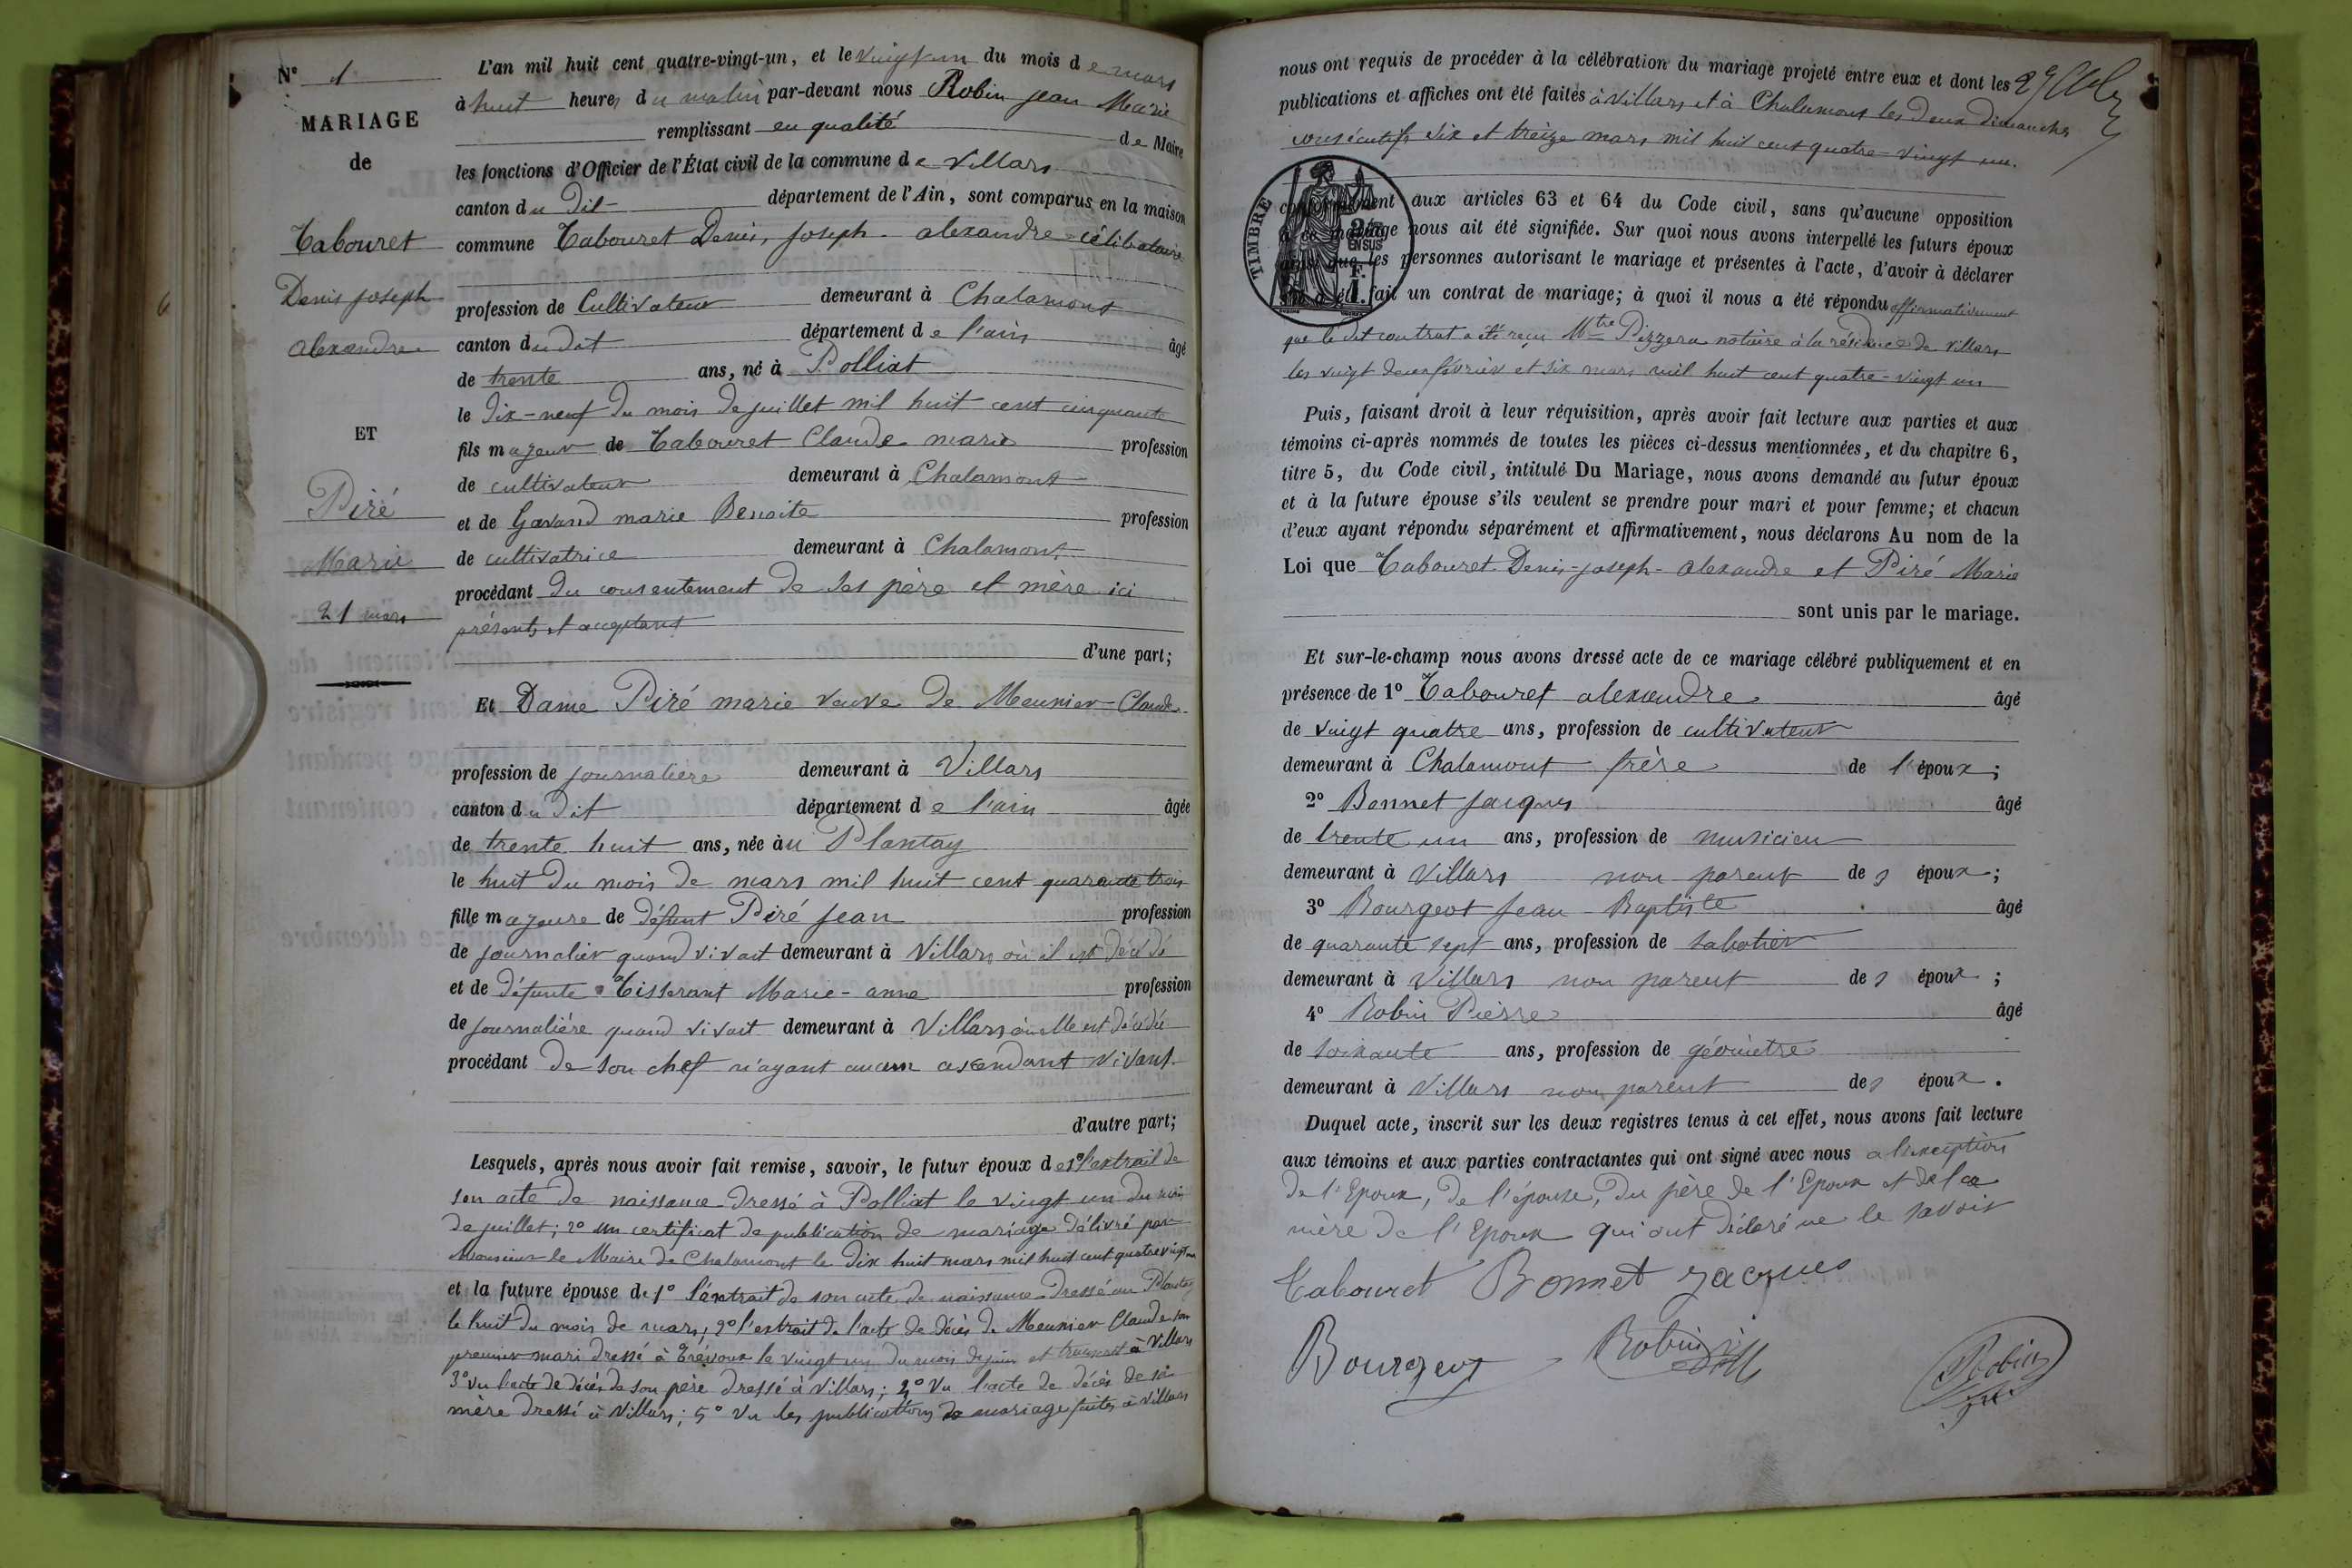 N° 1
MARIAGE
de
Tabouret
Denis joseph
alexandre
ET
Piré
Marie
21 mars
L'an mil huit cent quatre-vingt-un, et le vingt un du mois de mars
à huit heures du matin par-devant nous Robin jean Marie
remplissant en qualité de Maire
les fonctions d'Officier de l'État civil de la commune de Villars
canton du dit département de l'Ain, sont comparus en la maison
commune Tabouret Denis, joseph - alexandre célibataire
profession de Cultivateur demeurant à Chalamont
canton du dit département de l'ain âgé
de trente ans, né à Polliat
le dix-neuf du mois de juillet mil huit cent cinquante
fils majeur de Tabouret Claude marie profession
de cultivateur demeurant à Chalamont
et de Gavand marie Benoite profession
de cultivatrice demeurant à Chalamont
procédant du consentement de ses père et mère ici
présents et acceptant
d'une part;
Et Dame Piré marie veuve de Meunier Claude
profession de journalière demeurant à Villars
canton du dit département de l'ain âgée
de trente huit ans, née au Plantay
le huit du mois de mars mil huit cent quarante trois
fille majeure de défunt Piré Jean profession
de journalier quand vivait demeurant à Villars où il est décédé
et de défunte Tisserant Marie-anne profession
de journalière quand vivait demeurant à Villars où elle est décédée
procédant de son chef n'ayant aucun ascendant vivant
d'autre part;
Lesquels, après nous avoir fait remise, savoir, le futur époux de 1° l'extrait de
son acte de naissance dressé à Polliat le vingt un du mois
de juillet; 2° un certificat de publication de mariage délivré par
Monsieur le Maire de Chalamont le dix huit mars mil huit cent quatre vingt un
et la future épouse de 1° l'extrait de son acte de naissance dressé au Plantay
le huit du mois de mars; 2° l'extrait de l'acte de décès de Meunier Claude son
premier mari dressé à Trévoux le vingt un du mois de juin et transcrit à Villars
3° vu l'acte de décès de son père dressé à Villars; 4° Vu l'acte de décès de sa
mère dressé à Villars; 5° Vu les publications de mariage faites à Villars
nous ont requis de procéder à la célébration du mariage projeté entre eux et dont les
publications et affiches ont été faites à Villars et à Chalamont les deux dimanches
consécutifs six et treize mars mil huit cent quatre-vingt un.
TIMBRE
conformément aux articles 63 et 64 du Code civil, sans qu'aucune opposition
à ce mariage nous ait été signifiée. Sur quoi nous avons interpellé les futurs époux
ainsi que les personnes autorisant le mariage et présentes à l'acte, d'avoir à déclarer
s'il a été fait un contrat de mariage; à quoi il nous a été répondu affirmativement
que le dit contrat a été reçu Mtre Pizzera notaire à la résidence de Villars
les vingt deux février et six mars mil huit cent quatre-vingt un
Puis, faisant droit à leur réquisition, après avoir fait lecture aux parties et aux
témoins ci-après nommés de toutes les pièces ci-dessus mentionnées, et du chapitre 6,
titre 5, du Code civil, intitulé Du Mariage, nous avons demandé au futur époux
et à la future épouse s'ils veulent se prendre pour mari et pour femme; et chacun
d'eux ayant répondu séparément et affirmativement, nous déclarons Au nom de la
Loi que Tabouret Denis-joseph-alexandre et Piré Marie
sont unis par le mariage.
Et sur-le-champ nous avons dressé acte de ce mariage célébré publiquement et en
présence de 1° Tabouret alexandre âgé
de vingt quatre ans, profession de cultivateur
demeurant à Chalamont frère de l'époux;
2° Bonnet jacques âgé
de trente un ans, profession de musicien
demeurant à Villars non parent des époux;
3° Bourgeot Jean-Baptiste âgé
de quarante sept ans, profession de sabotier
demeurant à Villars non parent des époux;
4° Robin Pierre âgé
de soixante ans, profession de géomètre
demeurant à Villars non parent des époux.
Duquel acte, inscrit sur les deux registres tenus à cet effet, nous avons fait lecture
aux témoins et aux parties contractantes qui ont signé avec nous a l'exception
de l'Epoux, de l'épouse, du père de l'Epoux et de la
mère de l'Epoux qui ont déclaré ne le savoir
Tabouret Bonnet jacques
Bourgeot Robin Robin